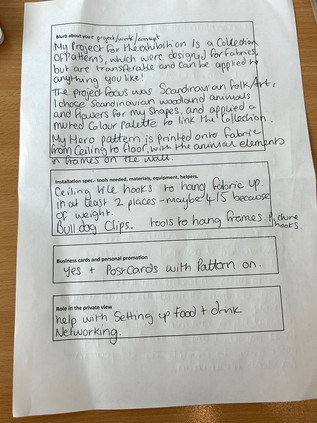 Blurb about your project/work/concept
My Project for the exhibition is a Collection
of Patterns, which were designed for fabrics,
but are transferable and can be applied to
anything you like!
The project focus was Scandinavian folk Art,
I chose Scandinavian woodland animals
and flowers for my shapes, and applied a
muted Colour palette to link the Collection.
My Hero pattern is printed onto fabric
from Ceiling to floor, with the animal elements
in frames on the wall.
Installation spec.- tools needed, materials, equipment, helpers.
Ceiling tile hooks to hang fabric up
in at least 2 places - maybe 4/5 because
of weight
Bull dog Clips. tools to hang frames. Picture
hooks.
Business cards and personal promotion
yes + Postcards with Pattern on.
Role in the private view
help with Setting up food + drink
Networking.